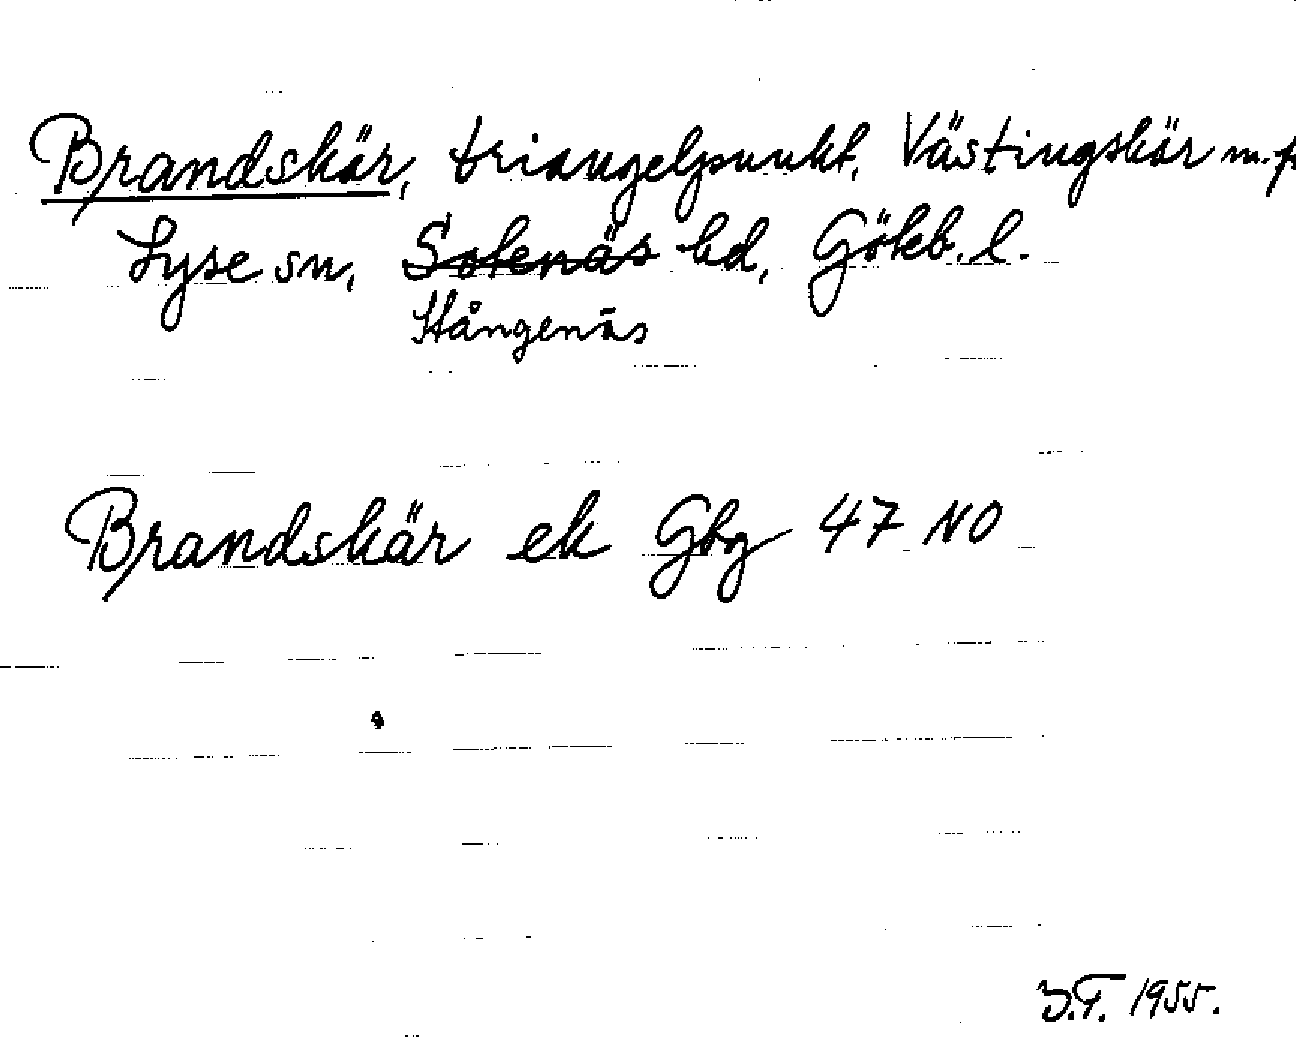 Brandskär, triangelpunkt, Västingskär m.fl
Lyse sn, Sotenäs hd, Gökb. l.
Stångenäs
Brandskär ek Gbg 47 NO
J.T. 1955.